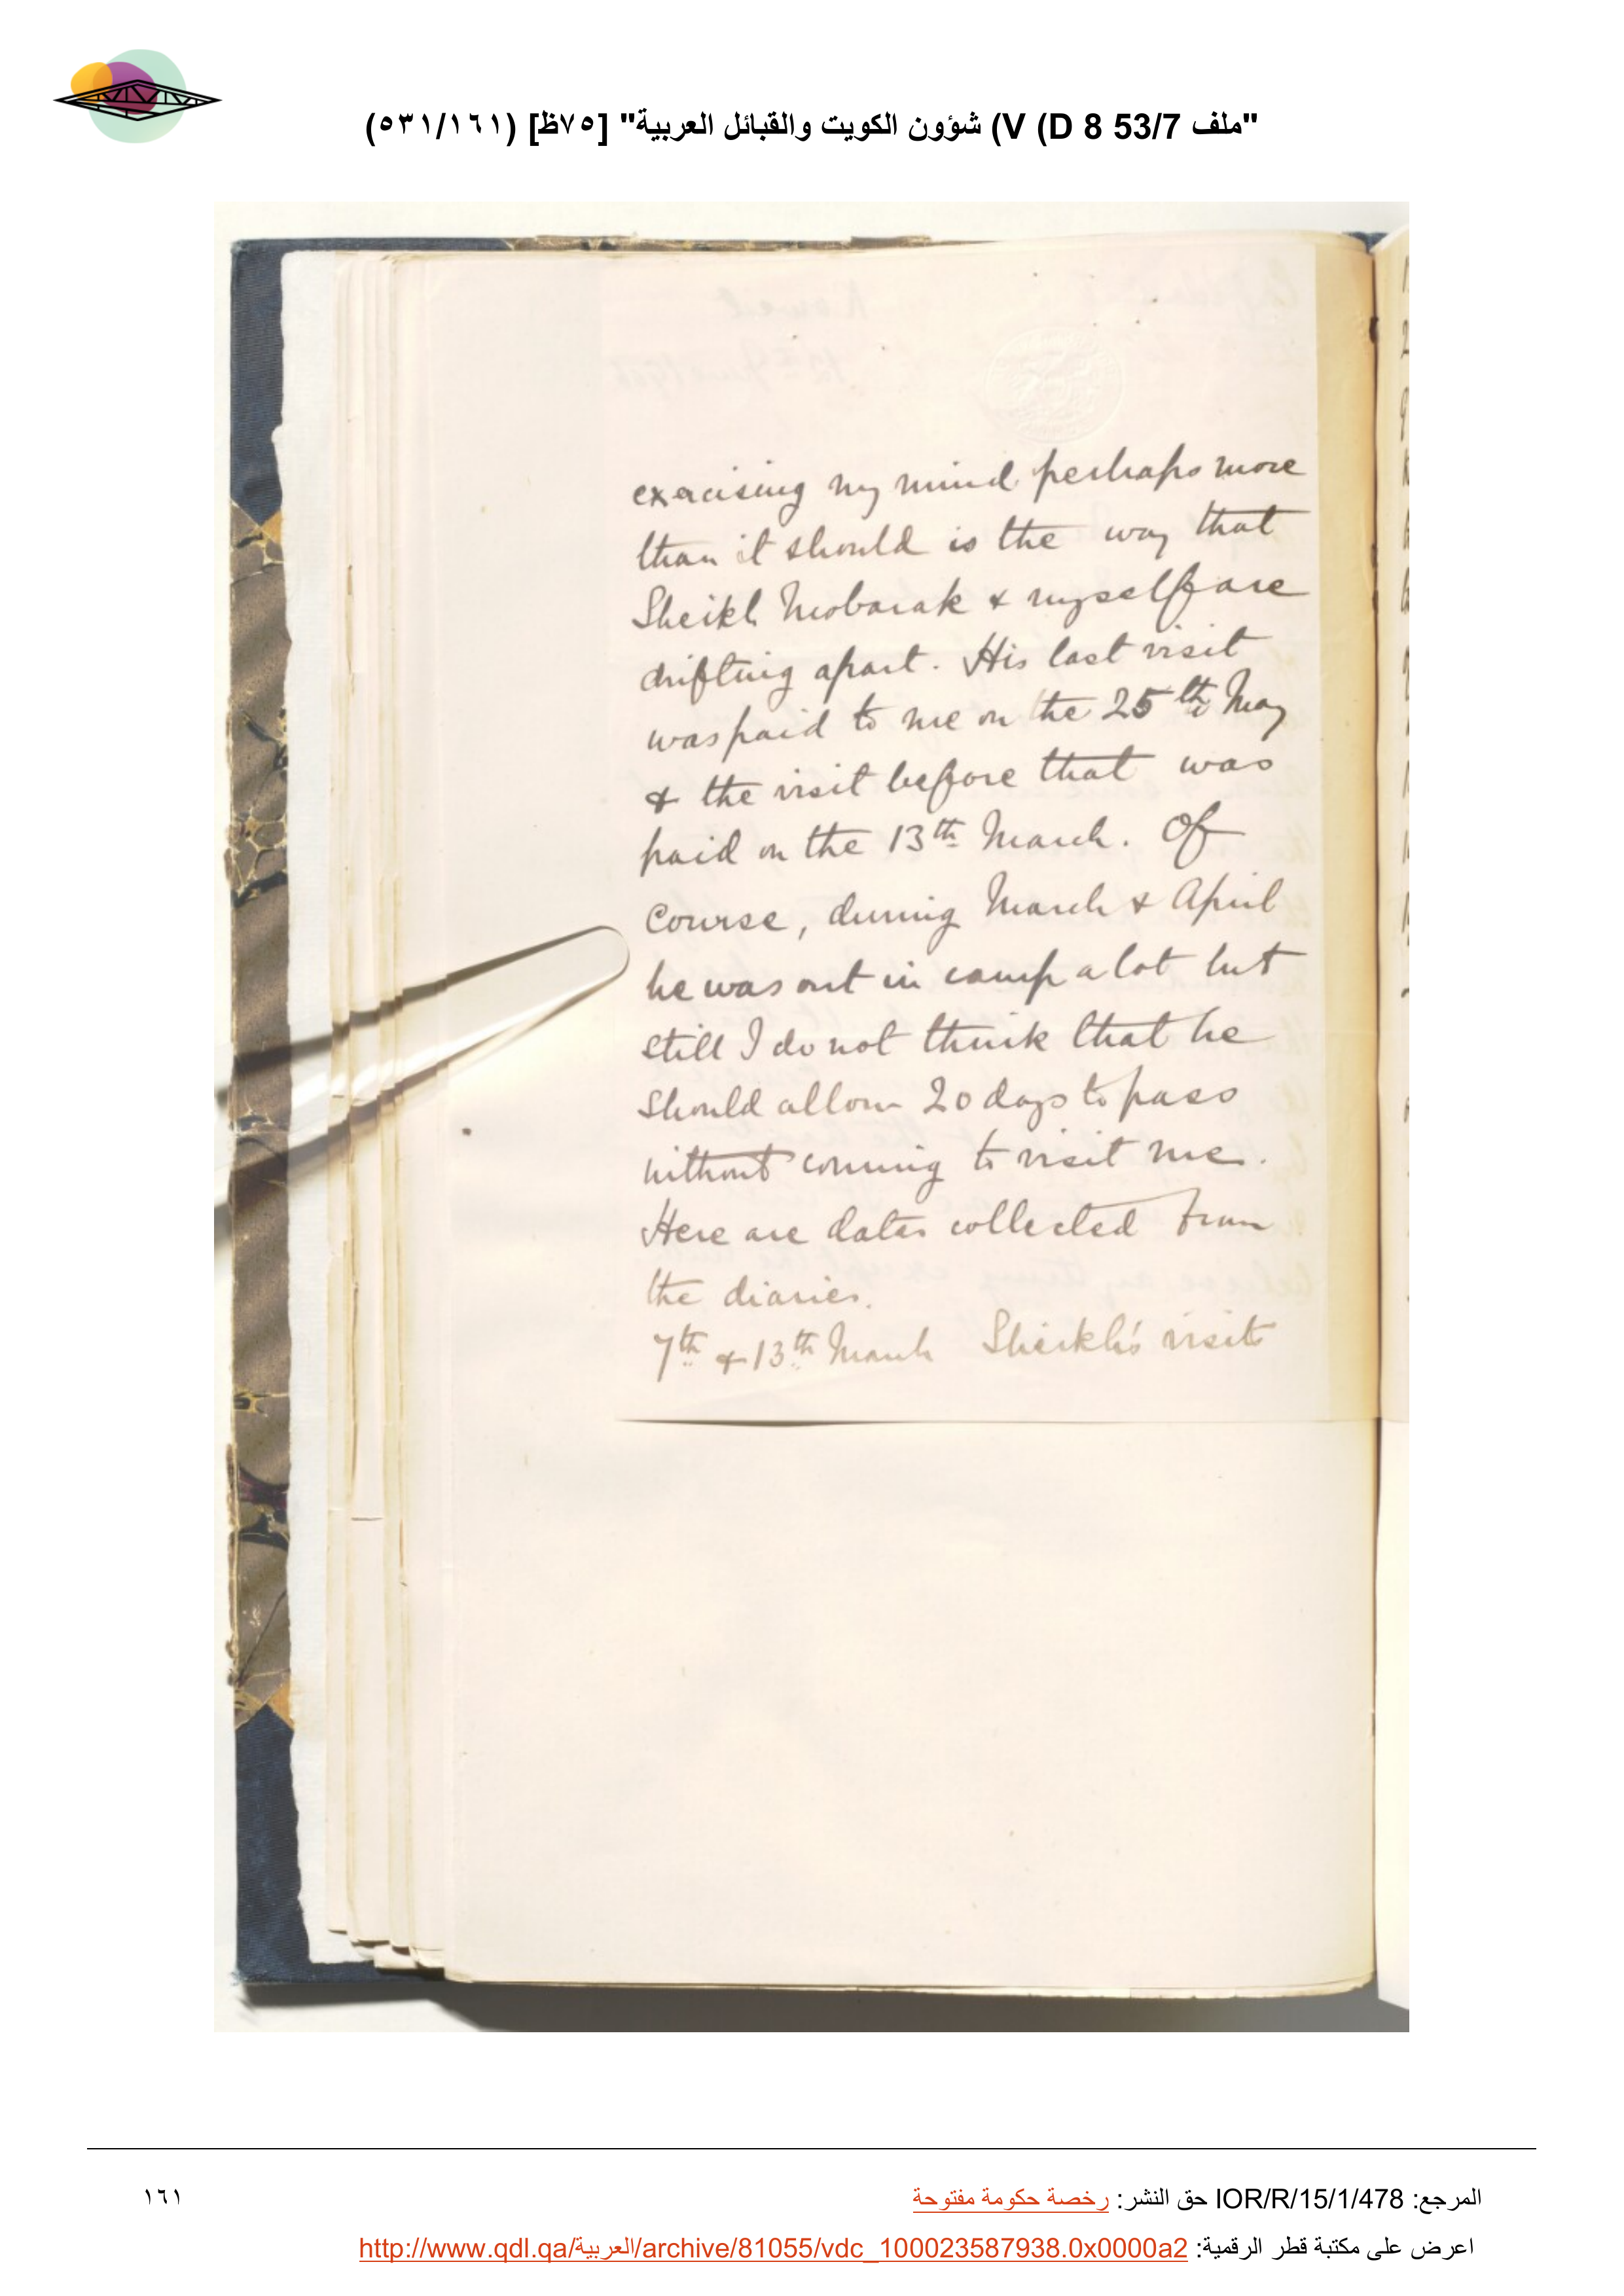 "ملف 53/7 V (D 8) شؤون الكويت والقبائل العربية" [٧٥ظ] (٥٣١/١٦١)
exercising my mind perhaps more
than it should is the way that
Sheikh Mobarak & myself are
drifting apart. His last visit
was paid to me on the 25th May
& the visit before that was
paid on the 13th March. Of
course, during March & April
he was out in camp a lot but
still I do not think that he
should allow 20 days to pass
without coming to visit me.
Here are dates collected from
the diaries.
7th & 13th March Sheikh's visits
المرجع: IOR/R/15/1/478 حق النشر: رخصة حكومة مفتوحة
١٦١
اعرض على مكتبة قطر الرقمية: http://www.qdl.qa/العربية/archive/81055/vdc_100023587938.0x0000a2